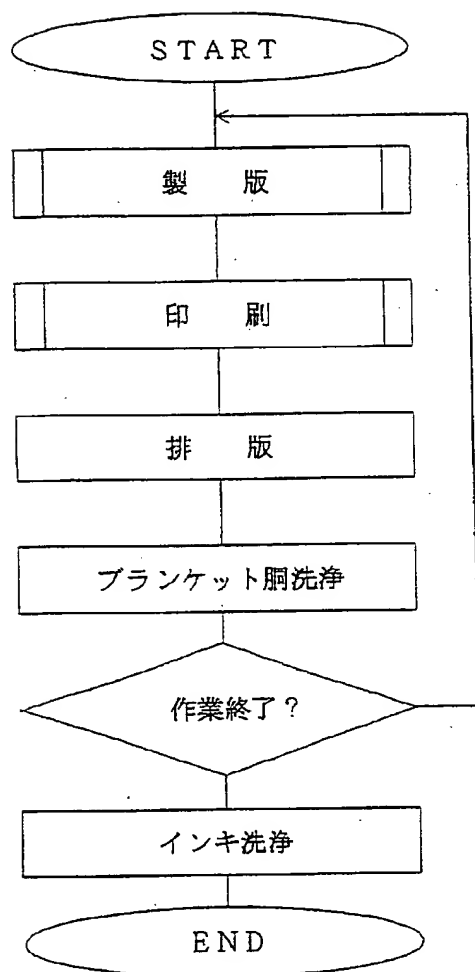 START
製版
印刷
排版
ブランケット胴洗浄
作業終了?
インキ洗浄
END